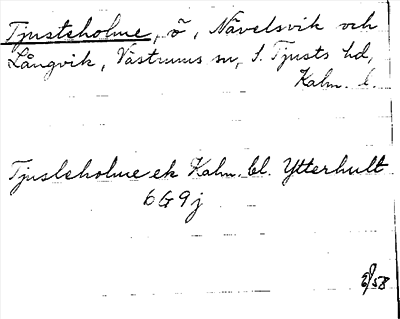 Tjustsholme, ö, Nävelsvik och
Långvik, Västrums sn, S. Tjusts hd,
Kalm. l.
Tjusleholme ek Kalm. bl. Ytterhult
6G9j
58